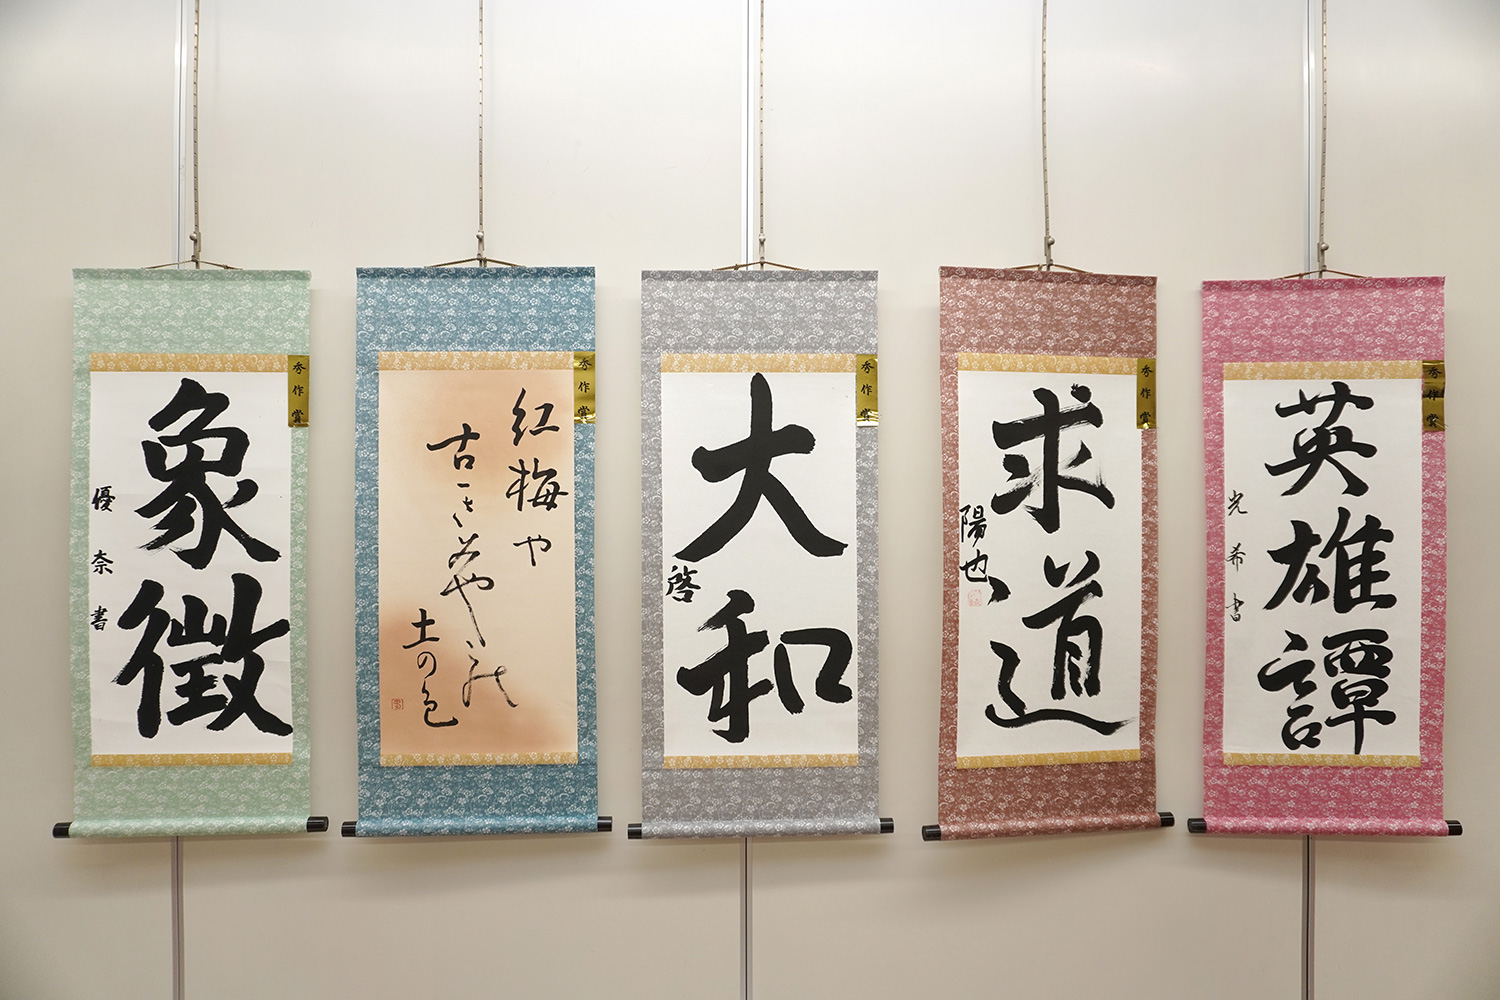 秀作賞
象徴
優奈書
秀作賞
紅梅や
古きみやこの
土の色
秀作賞
大和
啓
秀作賞
求道
陽也
秀作賞
英雄譚
光希書